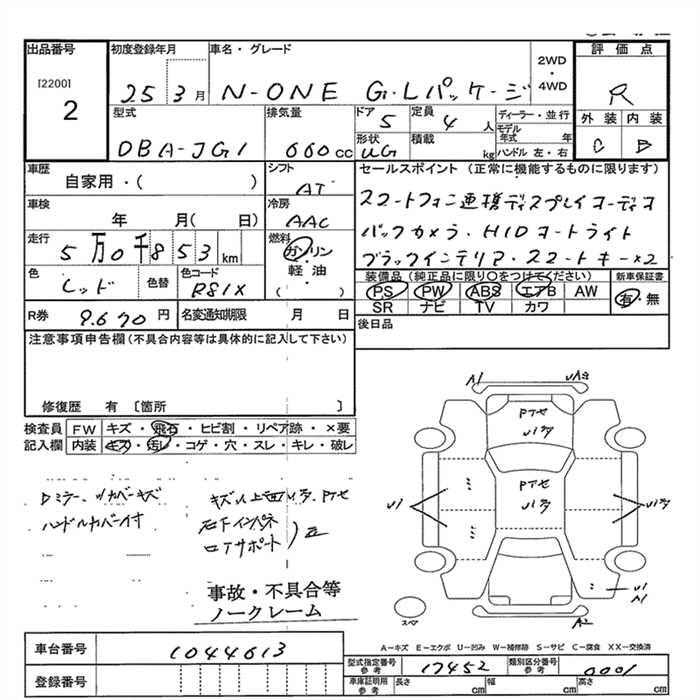 出品番号
[2200]
2
初度登録年月
25 3月
車名・グレード
N-ONE G・Lパッケージ
2WD
・
4WD
評価点
R
型式
DBA-JG1
排気量
660cc
ドア
5
定員
4人
ディーラー・並行
モデル年式 年
形状
UG
積載
kg
ハンドル 左・右
外装 内装
C B
車歴
自家用・( )
シフト
AT
セールスポイント (正常に機能するものに限ります)
スマートフォン連携ディスプレイオーディオ
バックカメラ・HIDオートライト
ブラックインテリア・スマートキー×2
車検
年 月( 日)
冷房
AAC
走行
5万0千853km
燃料
ガソリン
・
軽・油
( )
色
レッド
色替
色コード
R81X
装備品 (純正品に限り○をつけてください)
新車保証書
PS PW ABS エアB AW
SR ナビ TV カワ
有・無
R券
9.670円
名変通知期限 月 日
後日品
注意事項申告欄(不具合内容等は具体的に記入して下さい)
修復歴 有 〔箇所 〕
検査員
記入欄
FW キズ・飛石・ヒビ割・リペア跡・×要
内装 キズ・汚レ・コゲ・穴・スレ・キレ・破レ
A1
UA3
PTセ
PTセ
U1
U1
A1
A2
スペア
ハンドルカバー付
ロアサポート
事故・不具合等
ノークレーム
A−キズ E−エクボ U−凹み W−補修跡 S−サビ C−腐食 XX−交換済
車台番号
1044613
登録番号
型式指定番号
参考
17452
類別区分番号
参考
0001
車庫証明用
参考
長さ cm
幅 cm
高さ cm